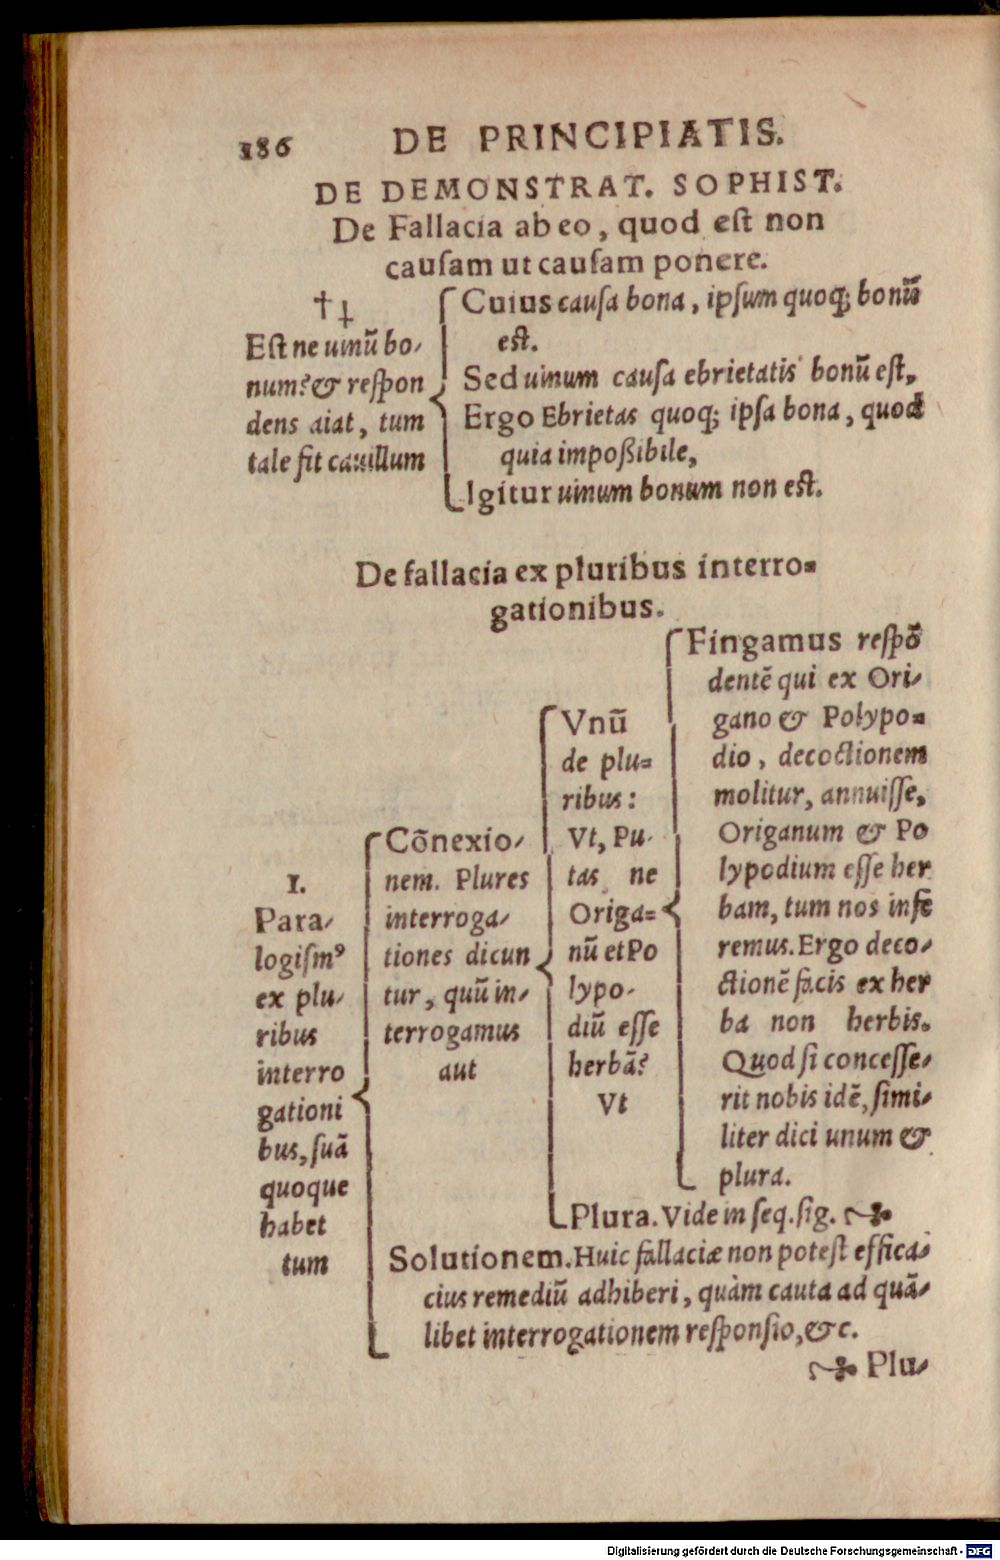 186 DE PRINCIPIATIS.
DE DEMONSTRAT. SOPHIST.
De Fallacia ab eo, quod est non
causam ut causam ponere.
† ⸸
Est ne uinũ bo-
num? & respon
dens aiat, tum
tale fit cauillum
Cuius causa bona, ipsum quoq; bonũ
est.
Sed uinum causa ebrietatis bonũ est,
Ergo Ebrietas quoq; ipsa bona, quod
quia impoßibile,
Igitur uinum bonum non est.
De fallacia ex pluribus interro-
gationibus.
I.
Para-
logismꝰ
ex plu-
ribus
interro
gationi
bus, suã
quoque
habet
tum
Cõnexio-
nem. Plures
interroga-
tiones dicun
tur, quũ in-
terrogamus
aut
Vnũ
de plu-
ribus:
Vt, Pu-
tas ne
Origa-
nũ et Po
lypo-
diũ esse
herbã?
Vt
Fingamus respõ
dentẽ qui ex Ori-
gano & Polypo-
dio, decoctionem
molitur, annuisse,
Origanum & Po
lypodium esse her
bam, tum nos infe
remus. Ergo deco-
ctionẽ facis ex her
ba non herbis.
Quod si concesse-
rit nobis idẽ, simi-
liter dici unum &
plura.
Plura. Vide in seq. sig. ☙
Solutionem. Huic fallaciæ non potest effica-
cius remediũ adhiberi, quàm cauta ad quã-
libet interrogationem responsio, &c.
☙ Plu-
Digitalisierung gefördert durch die Deutsche Forschungsgemeinschaft - DFG